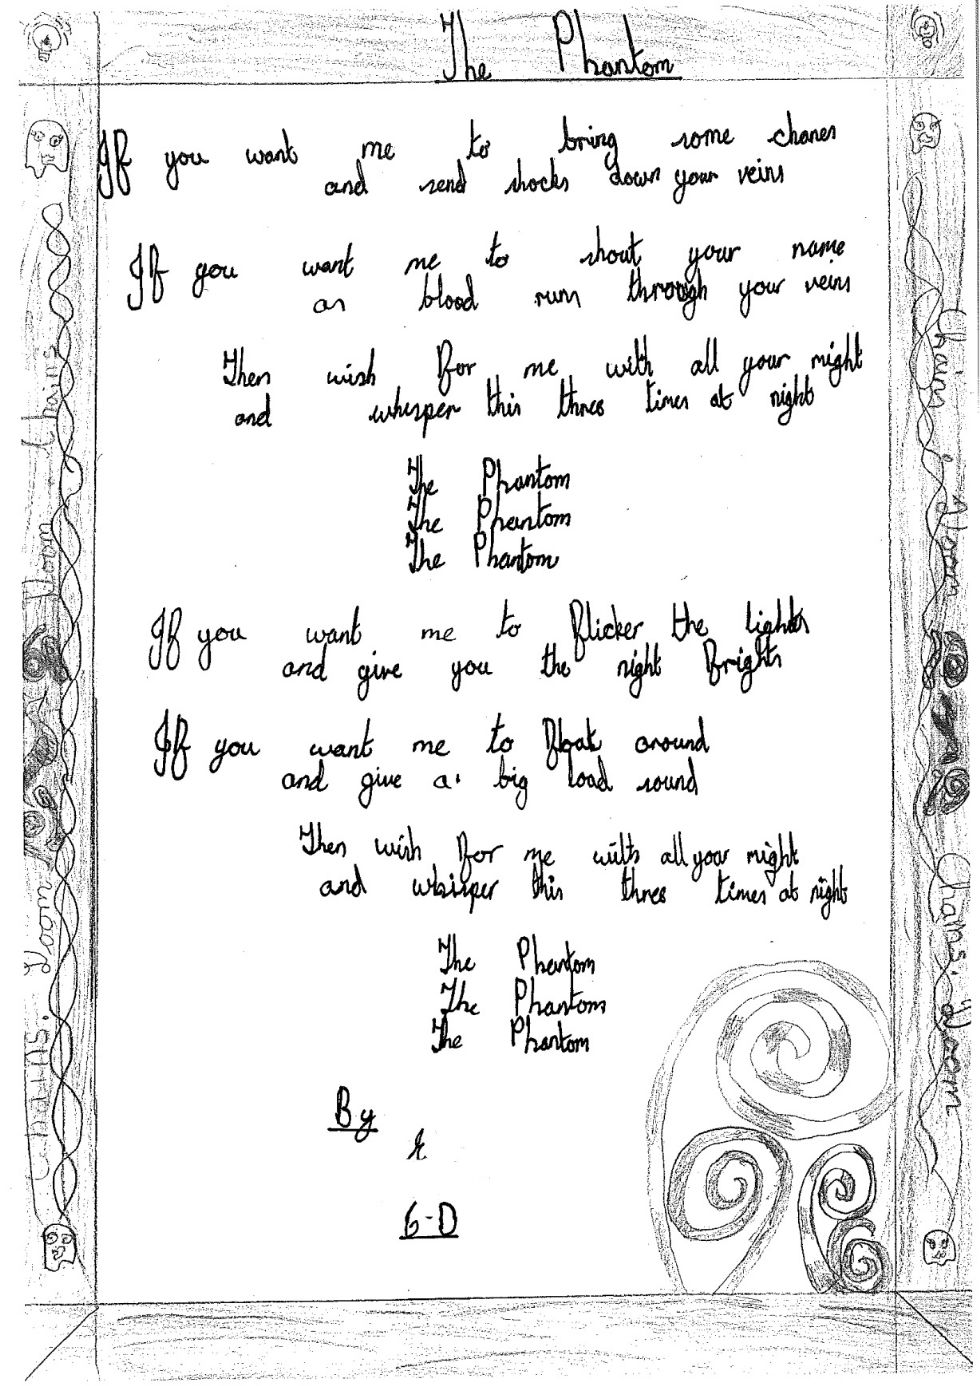 The Phantom
If you want me to bring some chanes
and send shocks down your veins
If you want me to shout your name
as blood runs through your veins
Then wish for me with all your might
and whisper this three times at night
The Phantom
The Phantom
The Phantom
If you want me to flicker the lights
and give you the night frights
If you want me to float around
and give a big load sound
Then wish for me with all your might
and whisper this three times at night
The Phantom
The Phantom
The Phantom
By
6-D
Chains. Doom
Doom Chains
Chains. Doom
Chains. Doom